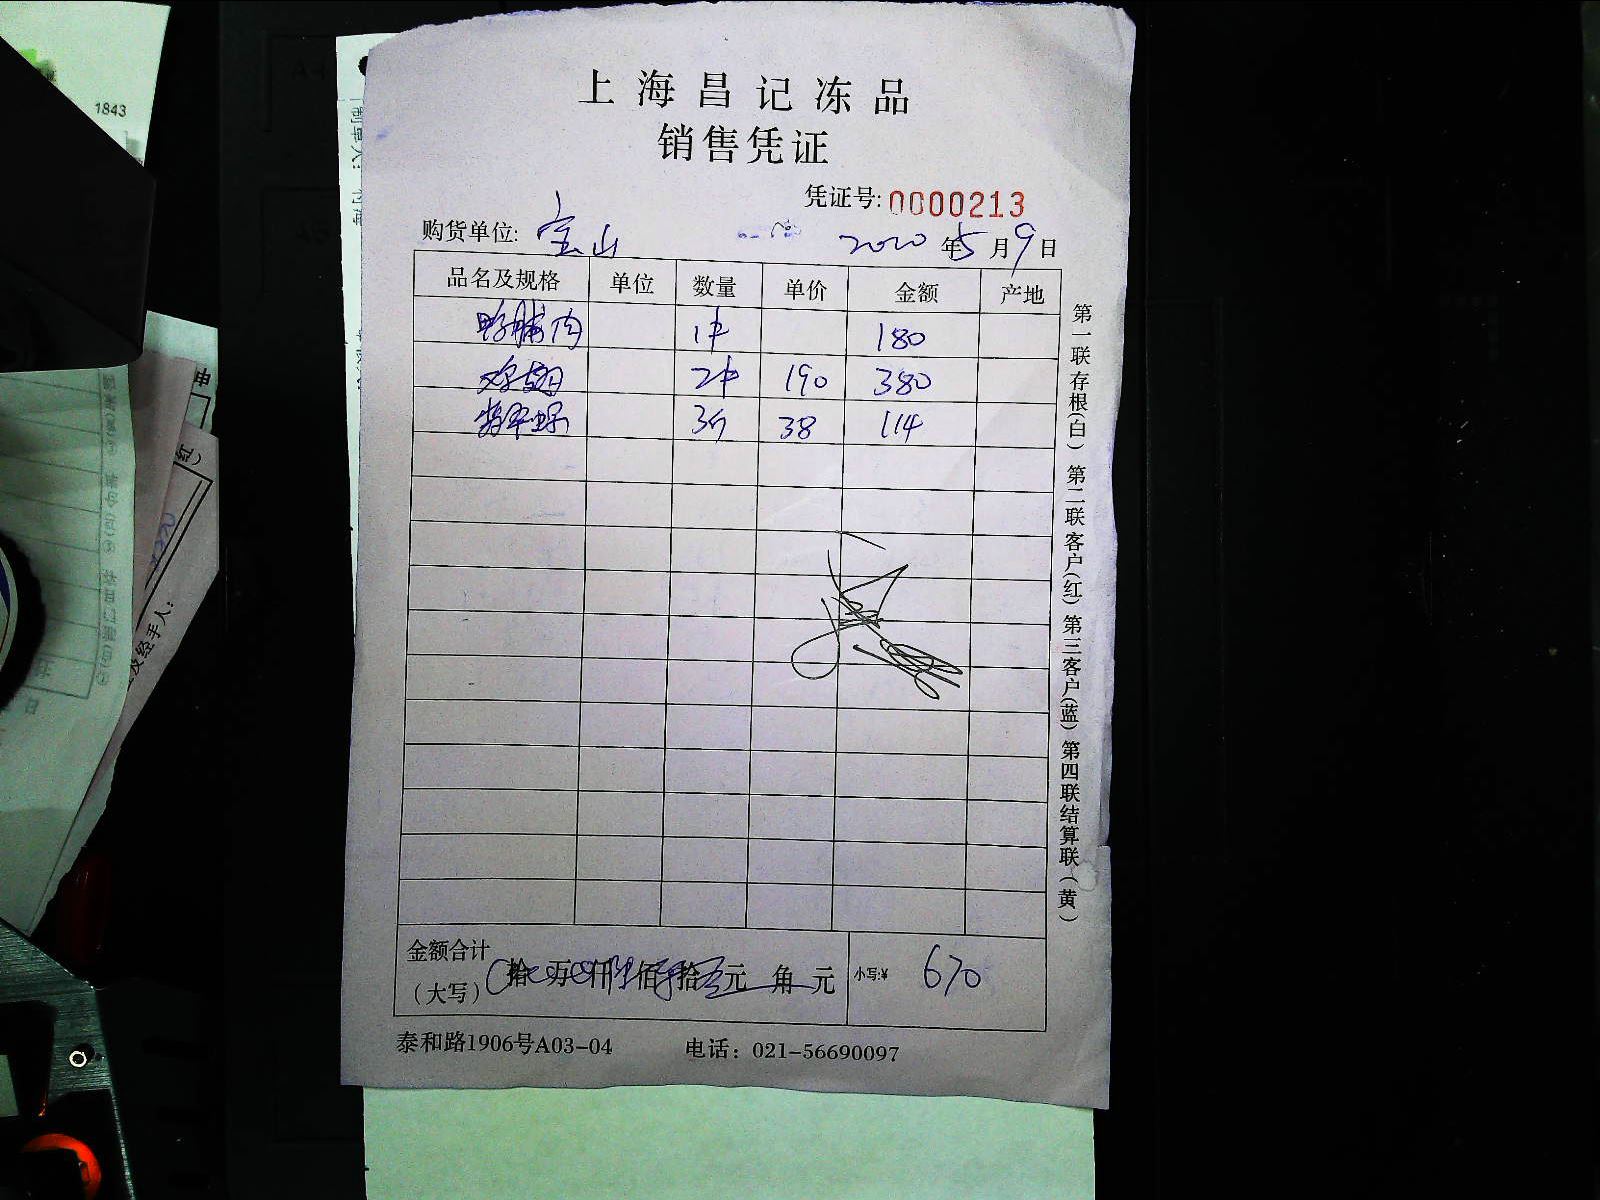 上海昌记冻品
销售凭证
凭证号:0000213
购货单位: 宝山 2020 年 5 月 9 日
品名及规格 单位 数量 单价 金额 产地
鸭脯肉 1件 180
鸡翅 2件 190 380
3斤 38 114
金额合计 (大写) 拾 万 仟 佰 拾 元 角 元 小写:¥ 670
泰和路1906号A03-04 电话：021-56690097
第一联存根(白) 第二联客户(红) 第三客户(蓝) 第四联结算联(黄)
1843
制单人:
及经手人: